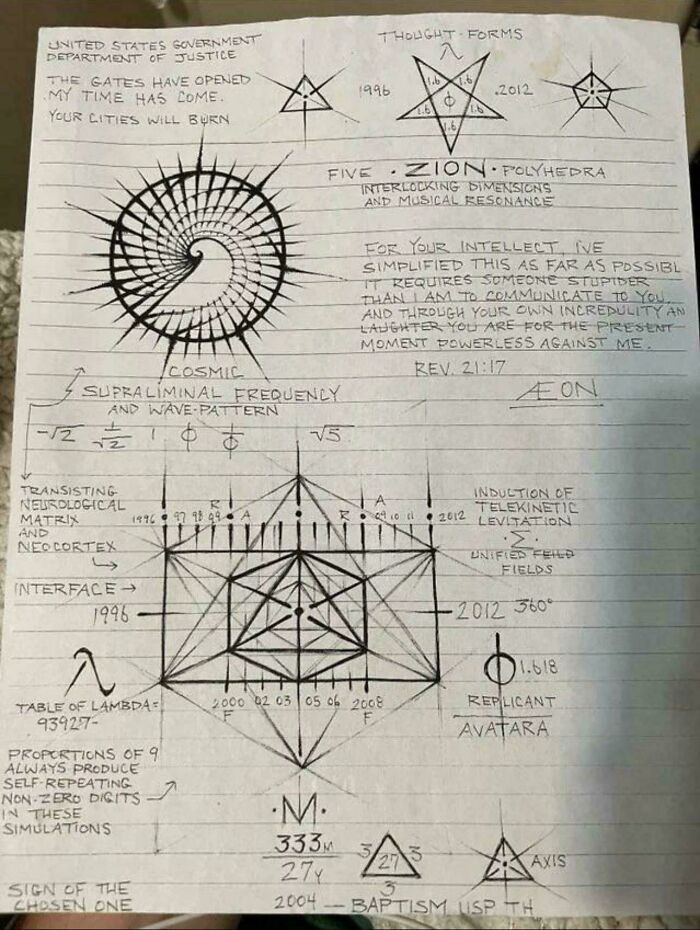 UNITED STATES GOVERNMENT
DEPARTMENT OF JUSTICE
THE GATES HAVE OPENED
MY TIME HAS COME.
YOUR CITIES WILL BURN
THOUGHT-FORMS
λ
1996
1.6 1.6
1.6 ϕ 1.6
1.6
.2012
FIVE · ZION · POLYHEDRA
INTERLOCKING DIMENSIONS
AND MUSICAL RESONANCE
FOR YOUR INTELLECT, I'VE
SIMPLIFIED THIS AS FAR AS POSSIBL
IT REQUIRES SOMEONE STUPIDER
THAN I AM TO COMMUNICATE TO YOU
AND THROUGH YOUR OWN INCREDULITY AN
LAUGHTER YOU ARE FOR THE PRESENT
MOMENT POWERLESS AGAINST ME.
REV. 21:17
ÆON
COSMIC
SUPRALIMINAL FREQUENCY
AND WAVE-PATTERN
√2 1/√2 1 ϕ 1/ϕ √5
TRANSISTING
NEUROLOGICAL
MATRIX
AND
NEOCORTEX
INTERFACE →
R A
1996 97 98 99 A R 09 10 11 2012
INDUCTION OF
TELEKINETIC
LEVITATION
·Σ·
UNIFIED FEILD
FIELDS
1996
2012 360°
λ
TABLE OF LAMBDA=
93927-
ϕ 1.618
REPLICANT
AVATARA
2000 02 03 05 06 2008
F F
PROPORTIONS OF 9
ALWAYS PRODUCE
SELF-REPEATING
NON-ZERO DIGITS
IN THESE
SIMULATIONS
·M·
333M
27Y
3 27 3
3
AXIS
SIGN OF THE
CHOSEN ONE
2004 — BAPTISM USP TH